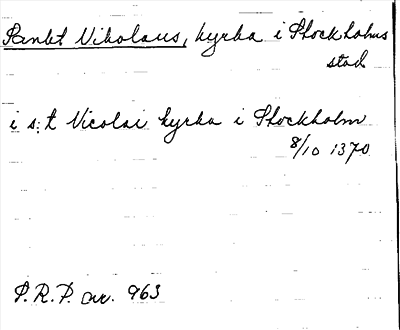 Sankt Nikolaus, kyrka i Stockholms
stad
i s:t Nicolai kyrka i Stockholm
8/10 1370
P.R.P. nr. 963